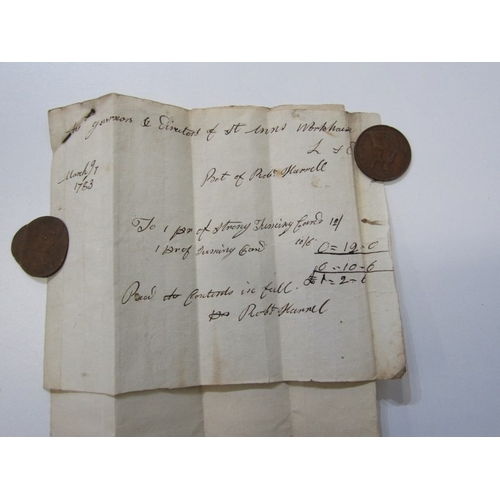 Governor & Directors of St Anns Workhouse
March 97
1753
Bot of Robt Harrell
To 1 pr of strong Card
0=12=0
1 pr of Card 10/6
0-10-6
£1=2=6
Recd the Contents in full
Robt Harrel